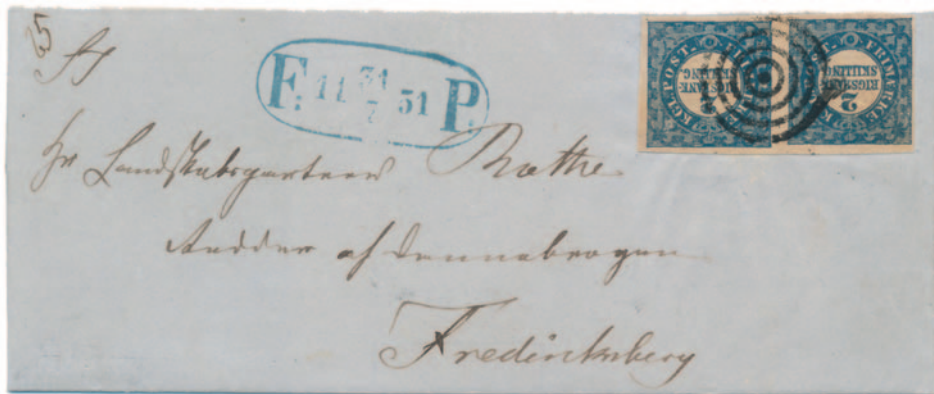 F: 11 31/7 51 P.
KGL POST. FRIMÆRKE 2 RIGSBANK SKILLING
KGL POST. FRIMÆRKE 2 RIGSBANK SKILLING
Hr Landskabsgartner Rothe
Ridder af Dannebrogen
Fredericksberg